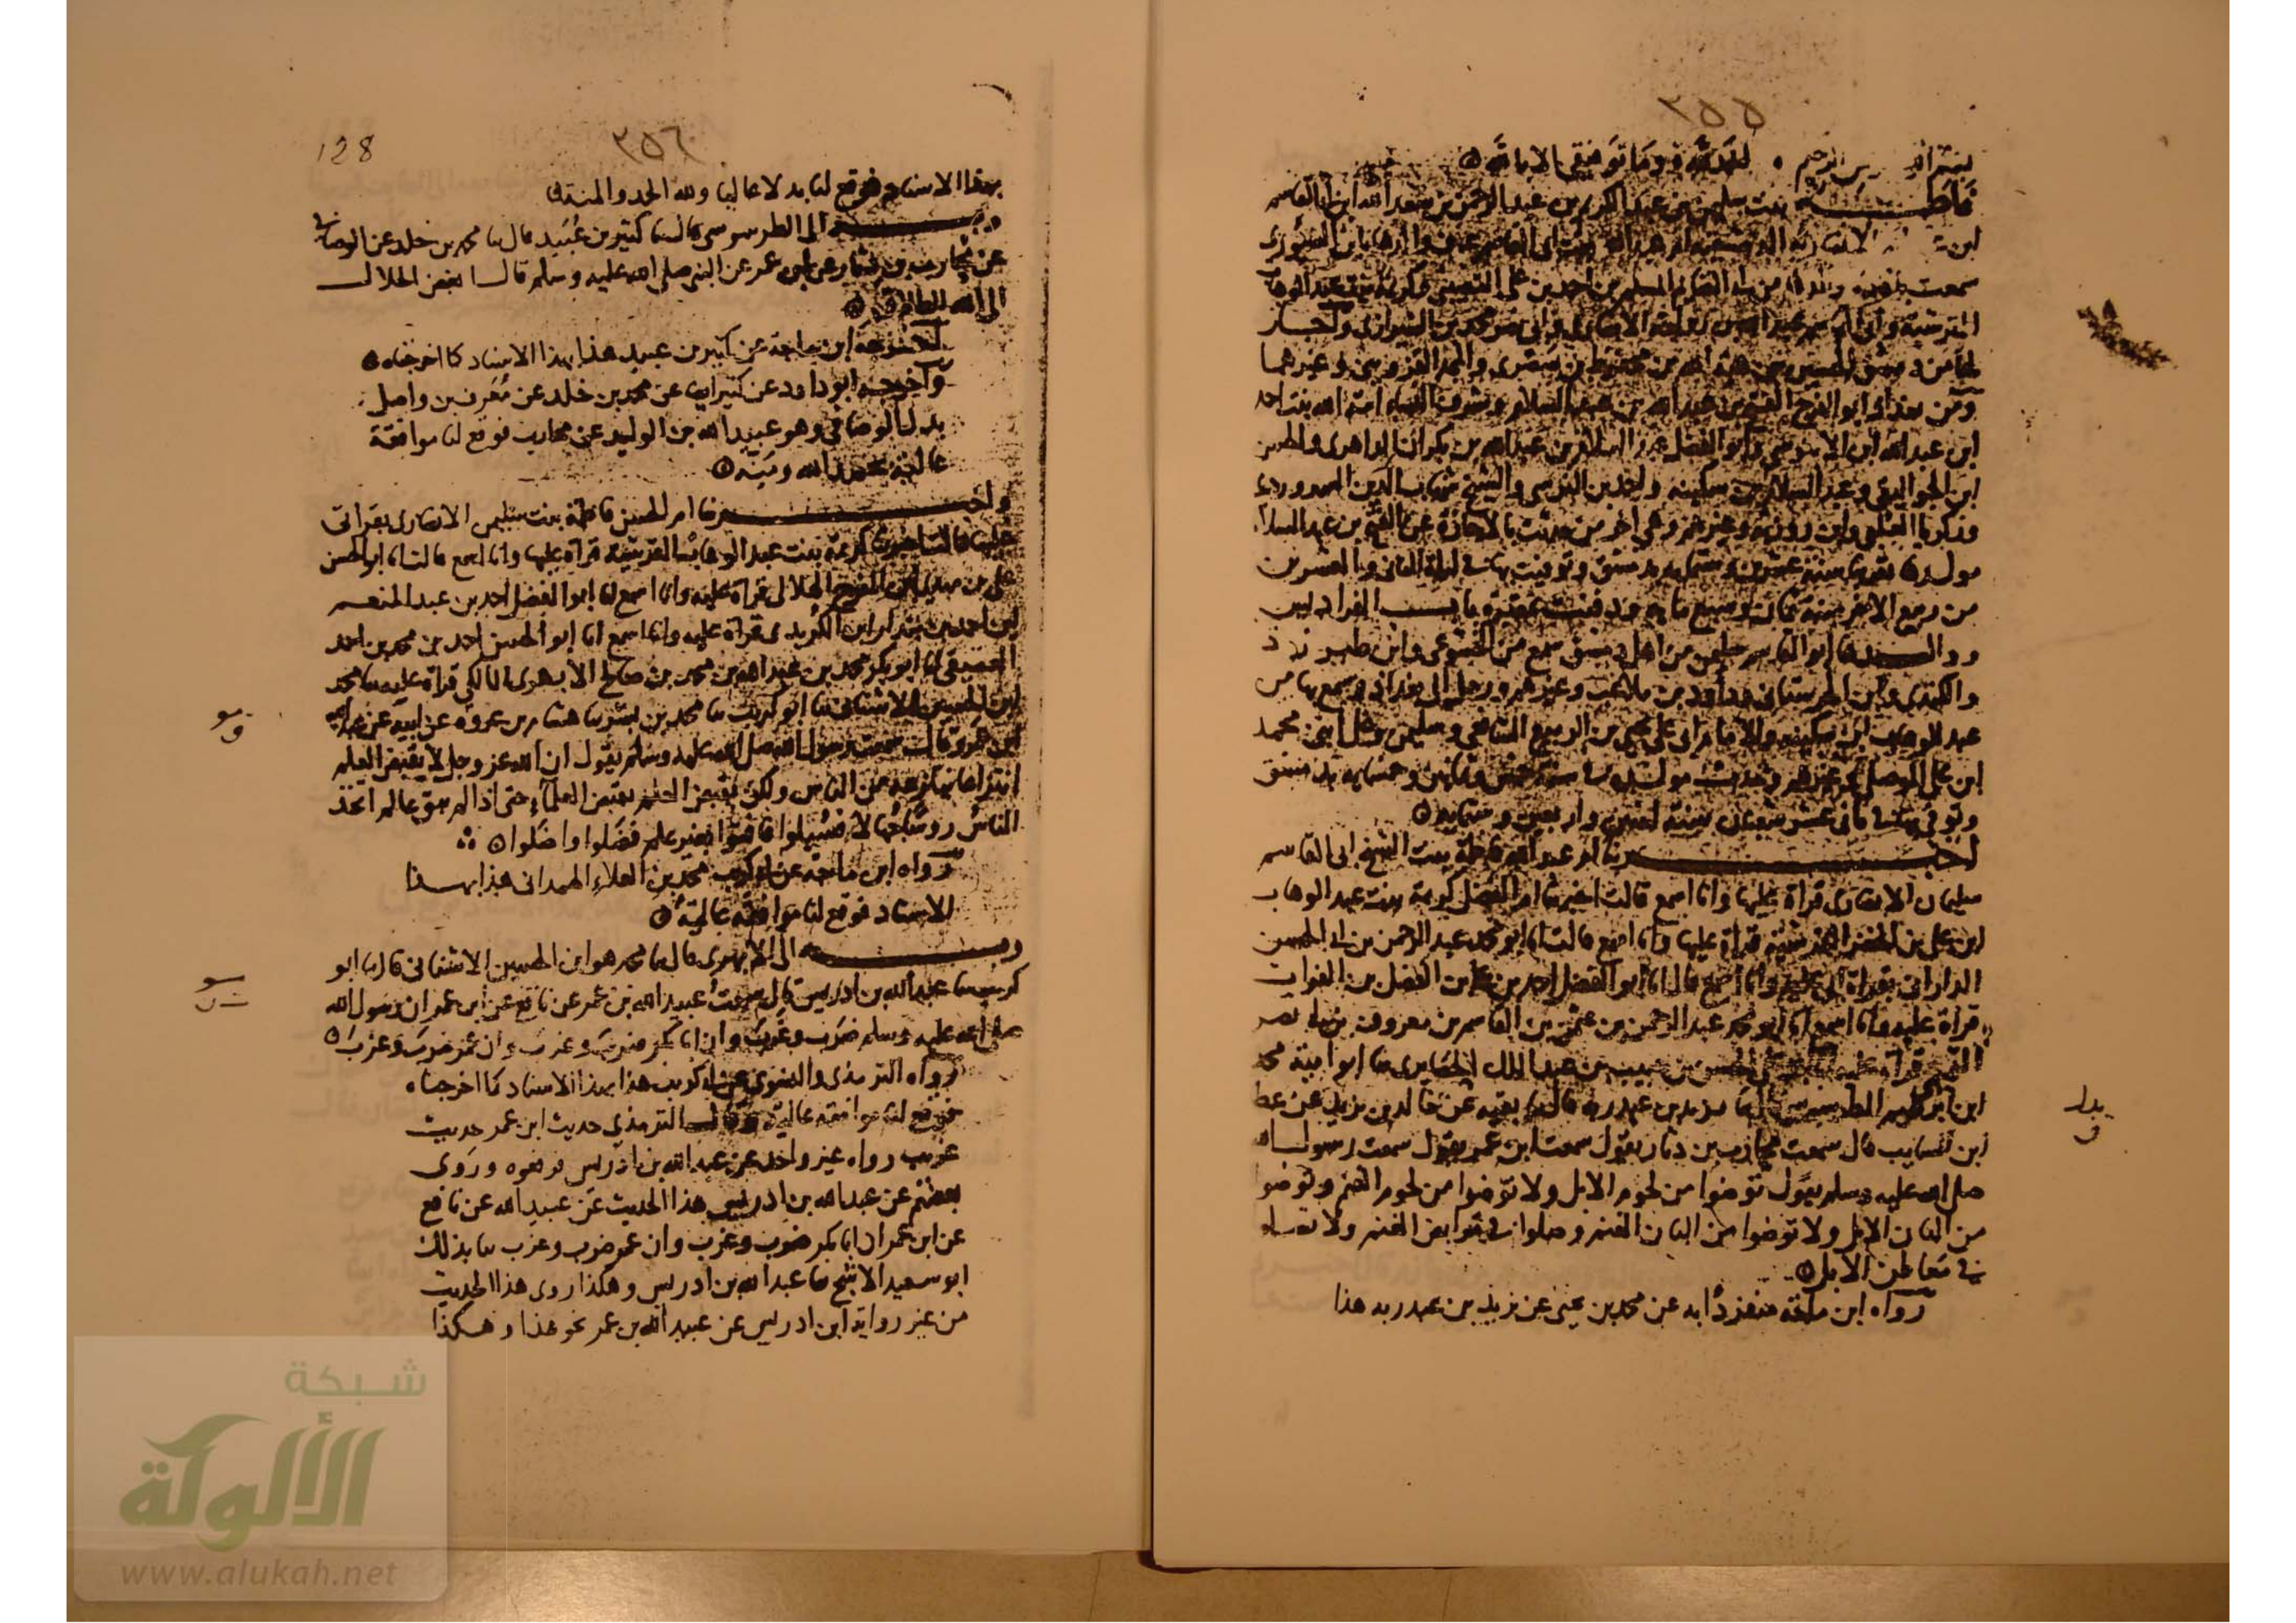 ٣٥٥
بسم الله الرحيم الحمد لله وما توفيقي الا بالله
فاطمة بنت سليمن بن عبد الكريم بن عبد الرحمن بن سعد الله ابن ابي القاسم
الانصاريه الدمشقية ام عبد الله بنت ابي القاسم
سمعت من المسلم بن احمد بن علي كريمة بنت عبد الوهاب
القرشية وابي عبد الله بن رواحة الانصاري وابي نصر محمد بن الشيرازي واجاز
لها من دمشق الحسين بن هبة الله بن محفوظ بن صصرى والمجد القزويني وغيرهما
ومن بغداد ابو الفرج الفتح بن عبد الله بن عبد السلام وشرف النساء امة الله بنت احمد
ابن عبد الله ابن الابنوسي وابو الفضل عبد السلام بن عبد الله بن بكران الداهري والحسن
ابن الجواليقي وعبد السلام بن سكينه واحمد بن النرسي والشيخ شهاب الدين السهروردي
وزكريا العلبي وابن روزبه وغيرهم وهي اخر من حدث بالاجازة عن الفتح بن عبد السلام
مولدها تقريبا سنة عشرين وستمايه بدمشق وتوفيت بها في ليلة الثاني والعشرين
من ربيع الاخر سنة ثمان وسبع مايه ودفنت بمقبرة باب الفراديس
ووالدها ابو القاسم سليمن من اهل دمشق سمع من الخشوعي وابن طبرزذ
والكندي وابن الحرستاني وداود بن ملاعب وغيرهم ورحل الى بغداد فسمع بها من
عبد الوهاب ابن سكينه والامام ابي علي يحيى بن الربيع الشافعي وسليمن وعلي ابني محمد
ابن علي الموصلي وغيرهم وحدث مولده في سنة وثمانين وخمسمايه بدمشق
وتوفي بها في ثاني عشر شعبان سنة اثنتين واربعين وستمايه
اخبرتنا ام عبد الله فاطمة بنت الشيخ ابي القاسم
سليمان الانصاري قراة عليها وانا اسمع قالت اخبرتنا ام الفضل كريمة بنت عبد الوهاب
ابن علي بن الخضر القرشية قراة عليها وانا اسمع قالت انا ابو محمد عبد الرحمن بن ابي الحسن
الداراني بقراة ابي عليه وانا اسمع قال انا ابو الفضل احمد بن علي بن الفضل بن الفرات
قراة عليه وانا اسمع انا ابو محمد عبد الرحمن بن عثمن بن القاسم بن معروف بن ابي نصر
التميمي قراة عليه انا ابو علي الحسن بن حبيب بن عبد الملك الحصايري ثنا ابو امية محمد
ابن ابرهيم الطرسوسي قال ثنا يزيد بن عبد ربه قال ثنا بقيه عن خالد بن يزيد عن عطا
ابن السايب قال سمعت محارب بن دثار يقول سمعت ابن عمر يقول سمعت رسول الله
صلى الله عليه وسلم يقول توضوا من لحوم الابل ولا توضوا من لحوم الغنم وتوضوا
من البان الابل ولا توضوا من البان الغنم وصلوا في مرابض الغنم ولا تصلوا
في معاطن الابل
رواه ابن ماجة منفردا به عن محمد بن يحيى عن يزيد بن عبد ربه هذا
بدل
ق
٣٥٦
128
بهذا الاسناد فوقع لنا بدلا عاليا ولله الحمد والمنة
وبه الى الطرسوسي قال ثنا كثير بن عبيد قال ثنا محمد بن خلد عن الوصافي
عن محارب بن دثار عن ابن عمر عن النبي صلى الله عليه وسلم قال ابغض الحلال
الى الله الطلاق
اخرجه ابن ماجة عن كثير بن عبيد هذا بهذا الاسناد كما اخرجناه
واخرجه ابو داود عن كثير ايضا عن محمد بن خلد عن معرف بن واصل
بدل الوصافي وهو عبيد الله بن الوليد عن محارب فوقع لنا موافقة
عالية بحمد الله ومنه
واخبرتنا ام الحسن فاطمة بنت سليمن الانصاري بقراتي
عليها قالت اخبرتنا كريمة بنت عبد الوهاب القرشية قراة عليها وانا اسمع قالت انا ابو الحسن
علي بن مهدي ابن المفرج الهلالي قراة عليه وانا اسمع انا ابو الفضل احمد بن عبد المنعم
ابن احمد بن بندار ابن الكريدي قراة عليه وانا اسمع انا ابو الحسن احمد بن محمد بن احمد
العتيقي انا ابو بكر محمد بن عبد الله بن محمد بن صالح الابهري المالكي قراة عليه ثنا محمد
ابن الحسين الاشناني ثنا ابو كريب ثنا محمد بن بشر ثنا هشام بن عروة عن ابيه عن عبد الله
ابن عمرو قال سمعت رسول الله صلى الله عليه وسلم يقول ان الله عز وجل لا يقبض العلم
انتزاعا ينتزعه من الناس ولكن يقبض العلم بقبض العلماء حتى اذا لم يبق عالم اتخذ
الناس روسا جهالا فسيلوا فافتوا بغير علم فضلوا واضلوا
رواه ابن ماجة عن ابي كريب محمد بن العلاء الهمداني هذا بهذا
الاسناد فوقع لنا موافقة عالية
وبه الى الابهري قال ثنا محمد هو ابن الحسين الاشناني قال ثنا ابو
كريب ثنا عبد الله بن ادريس قال سمعت عبيد الله بن عمر عن نافع عن ابن عمر ان رسول الله
صلى الله عليه وسلم ضرب وغرب وان ابا بكر ضرب وغرب وان عمر ضرب وغرب
رواه الترمذي والنسوي عن ابي كريب هذا بهذا الاسناد كما اخرجناه
فوقع لنا موافقة عالية وقال الترمذي حديث ابن عمر حديث
غريب رواه غير واحد عن عبد الله بن ادريس فرفعوه وروى
بعضهم عن عبد الله بن ادريس هذا الحديث عن عبيد الله عن نافع
عن ابن عمر ان ابا بكر ضرب وغرب وان عمر ضرب وغرب ثنا بذلك
ابو سعيد الاشج ثنا عبد الله بن ادريس وهكذا روى هذا الحديث
من غير رواية ابن ادريس عن عبيد الله بن عمر نحو هذا وهكذا
شبكة
الألوكة
www.alukah.net